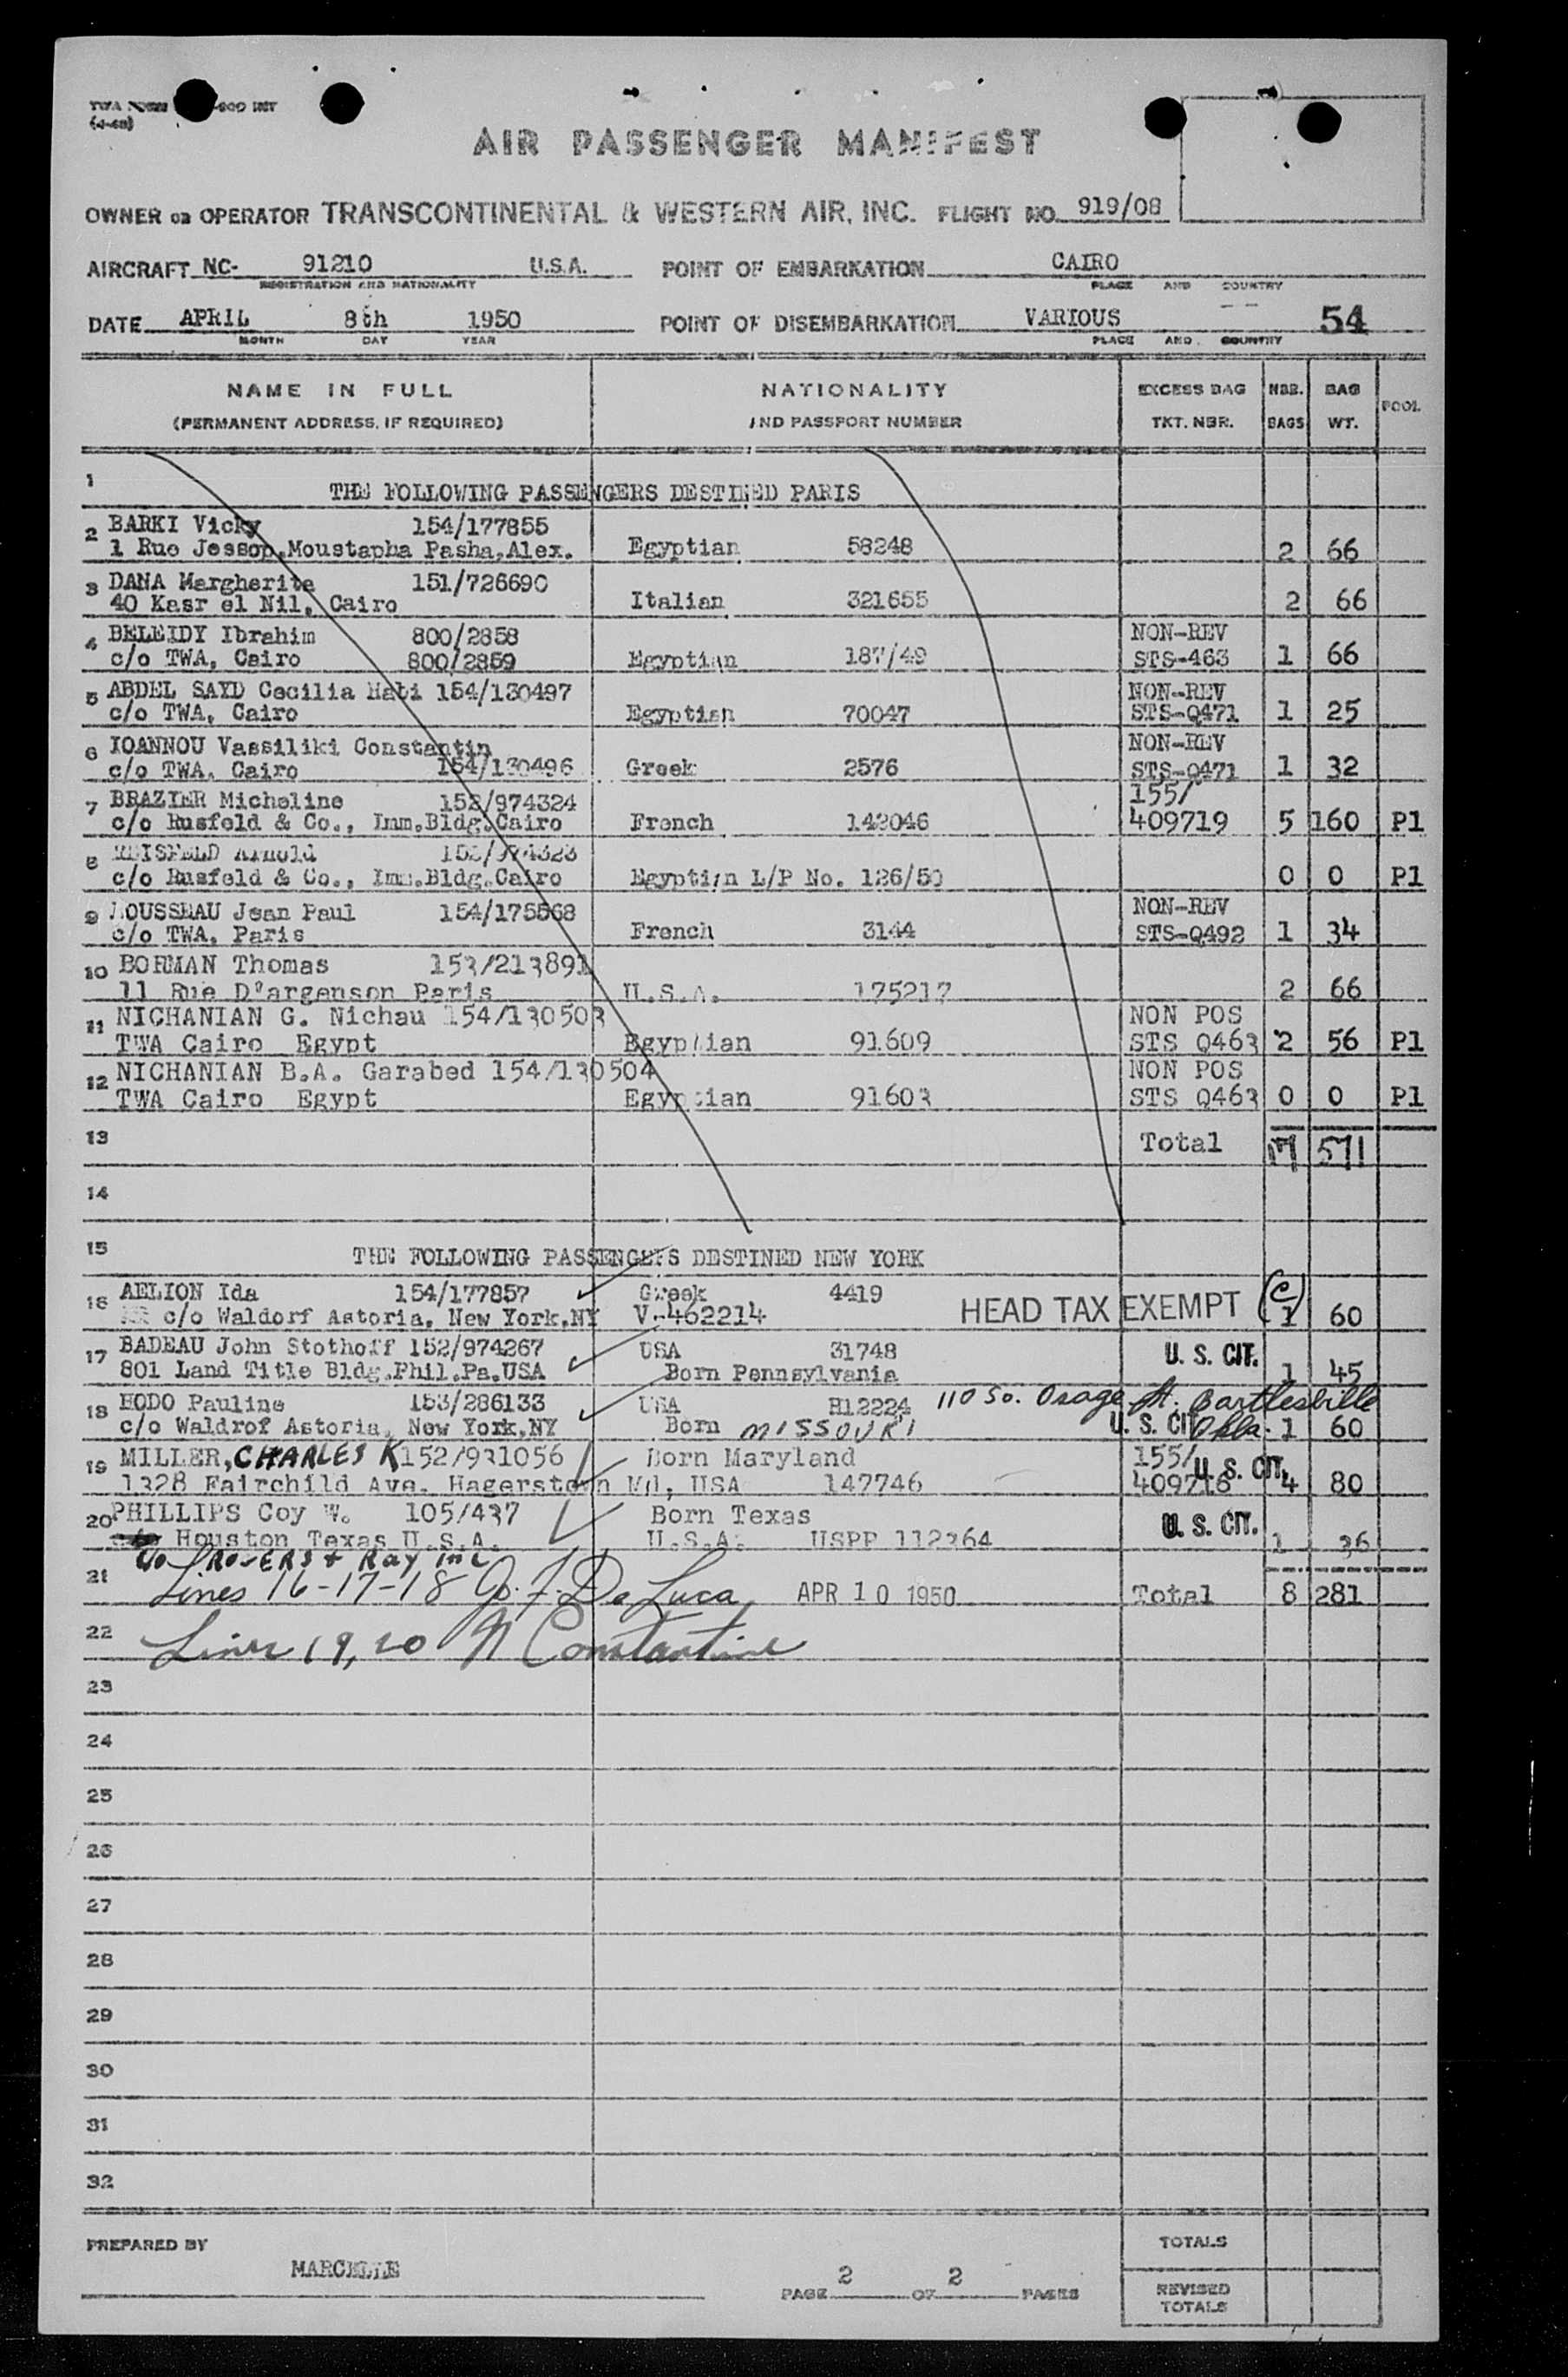 (4-48)
AIR PASSENGER MANIFEST
OWNER OR OPERATOR TRANSCONTINENTAL & WESTERN AIR, INC. FLIGHT NO. 919/08
AIRCRAFT NC- 91210 U.S.A. POINT OF EMBARKATION CAIRO
REGISTRATION AND NATIONALITY PLACE AND COUNTRY
DATE APRIL 8th 1950 POINT OF DISEMBARKATION VARIOUS 54
MONTH DAY YEAR PLACE AND COUNTRY
NAME IN FULL NATIONALITY EXCESS BAG NBR. BAG POOL
(PERMANENT ADDRESS, IF REQUIRED) AND PASSPORT NUMBER TKT. NBR. BAGS WT.
1 THE FOLLOWING PASSENGERS DESTINED PARIS
2 BARKI Vicky 154/177855
1 Rue Jessop,Moustapha Pasha,Alex. Egyptian 58248 2 66
3 DANA Margherite 151/726690
40 Kasr el Nil, Cairo Italian 321655 2 66
4 BELEIDY Ibrahim 800/2858 NON-REV
c/o TWA, Cairo 800/2859 Egyptian 187/49 STS-463 1 66
5 ABDEL SAYD Cecilia Habi 154/130497 NON-REV
c/o TWA, Cairo Egyptian 70047 STS-Q471 1 25
6 IOANNOU Vassiliki Constantin NON-REV
c/o TWA, Cairo 154/130496 Greek 2576 STS-Q471 1 32
7 BRAZIER Micheline 152/974324 155/
c/o Rusfeld & Co., Imm.Bldg.Cairo French 142046 409719 5 160 P1
8 Arnold
c/o Rusfeld & Co., Imm.Bldg.Cairo Egyptian L/P No. 126/50 0 0 P1
9 ROUSSEAU Jean Paul 154/175568 NON-REV
c/o TWA, Paris French 3144 STS-Q492 1 34
10 BORMAN Thomas 153/213891
11 Rue D'argenson Paris U.S.A. 175217 2 66
11 NICHANIAN G. Nichau 154/130503 NON POS
TWA Cairo Egypt Egyptian 91609 STS Q463 2 56 P1
12 NICHANIAN B.A. Garabed 154/130504 NON POS
TWA Cairo Egypt Egyptian 91603 STS Q463 0 0 P1
13 Total 17 571
14
15 THE FOLLOWING PASSENGERS DESTINED NEW YORK
16 AELION Ida 154/177857 Greek 4419 (C)
c/o Waldorf Astoria, New York,NY V-462214 HEAD TAX EXEMPT 1 60
17 BADEAU John Stothoff 152/974267 USA 31748 U. S. CIT.
801 Land Title Bldg.Phil.Pa.USA Born Pennsylvania 1 45
18 HODO Pauline 153/286133 USA B12224 110 So. Osage St. Bartlesville
c/o Waldrof Astoria, New York,NY Born MISSOURI U. S. CIT Okla. 1 60
19 MILLER, CHARLES K 152/931056 Born Maryland 155/ U. S. CIT.
1328 Fairchild Ave. Hagerstown Md, USA 147746 409718 4 80
20 PHILLIPS Coy W. 105/437 Born Texas U. S. CIT.
Houston Texas U.S.A. U.S.A. USPP 112364 1 36
c/o Rogers + Ray Inc
21 Lines 16-17-18 Jo. F. De Luca APR 10 1950 Total 8 281
22 Lines 19, 20 N Constantine
23
24
25
26
27
28
29
30
31
32
PREPARED BY TOTALS
MARCELLE PAGE 2 OF 2 PAGES REVISED
TOTALS